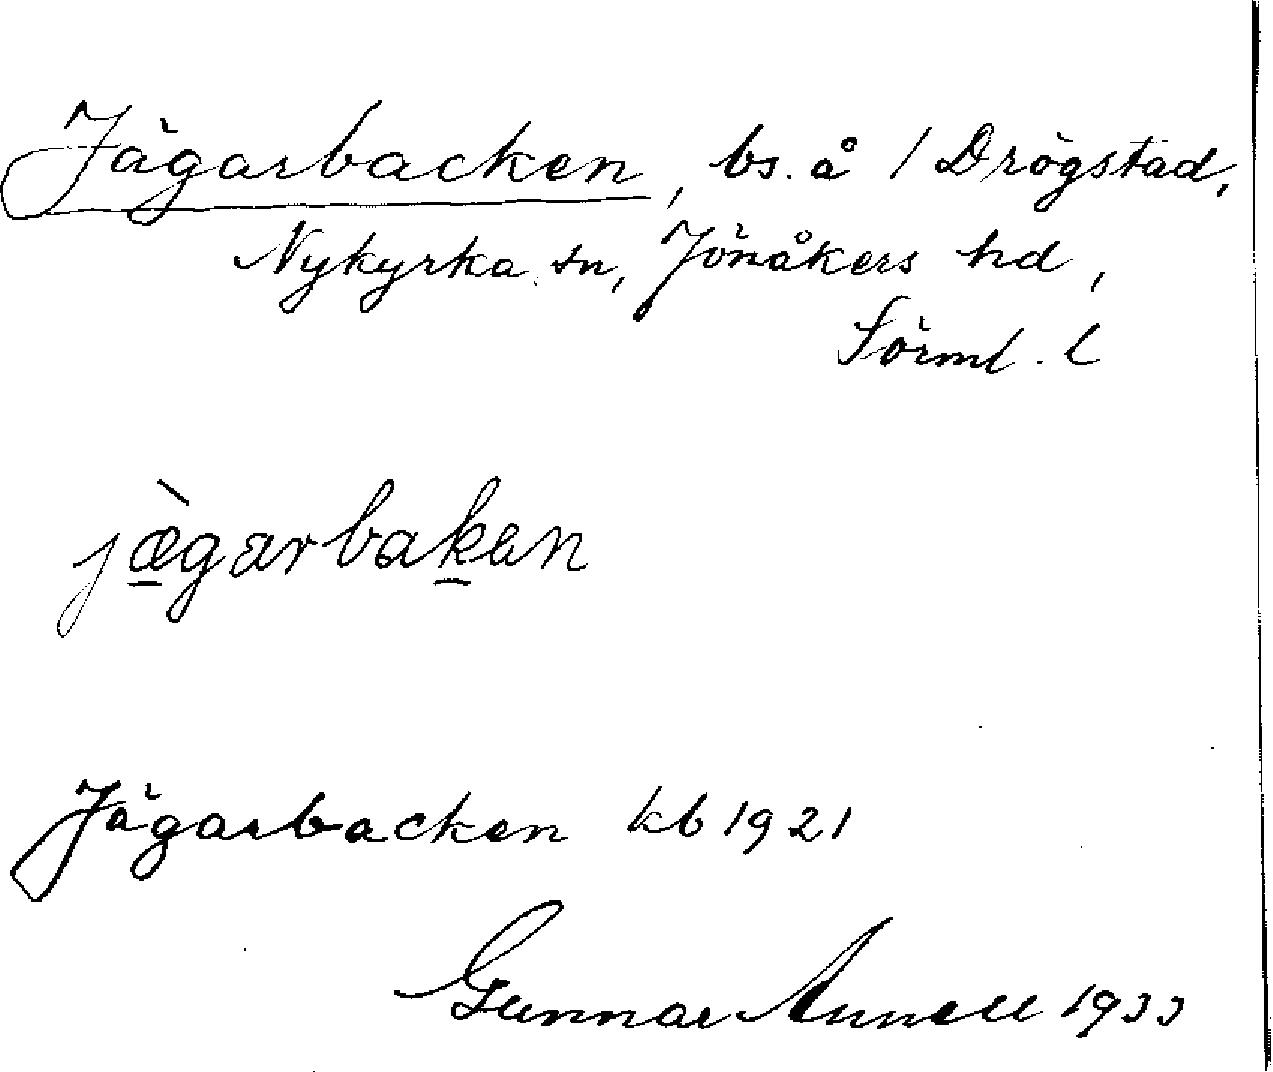 Jägarbacken, bs. å 1 Drögstad,
Nykyrka sn, Jönåkers hd,
Sörml. l
jæ̠̀garbak̠an
Jägarbacken kb 1921
Gunnar Annell 1933